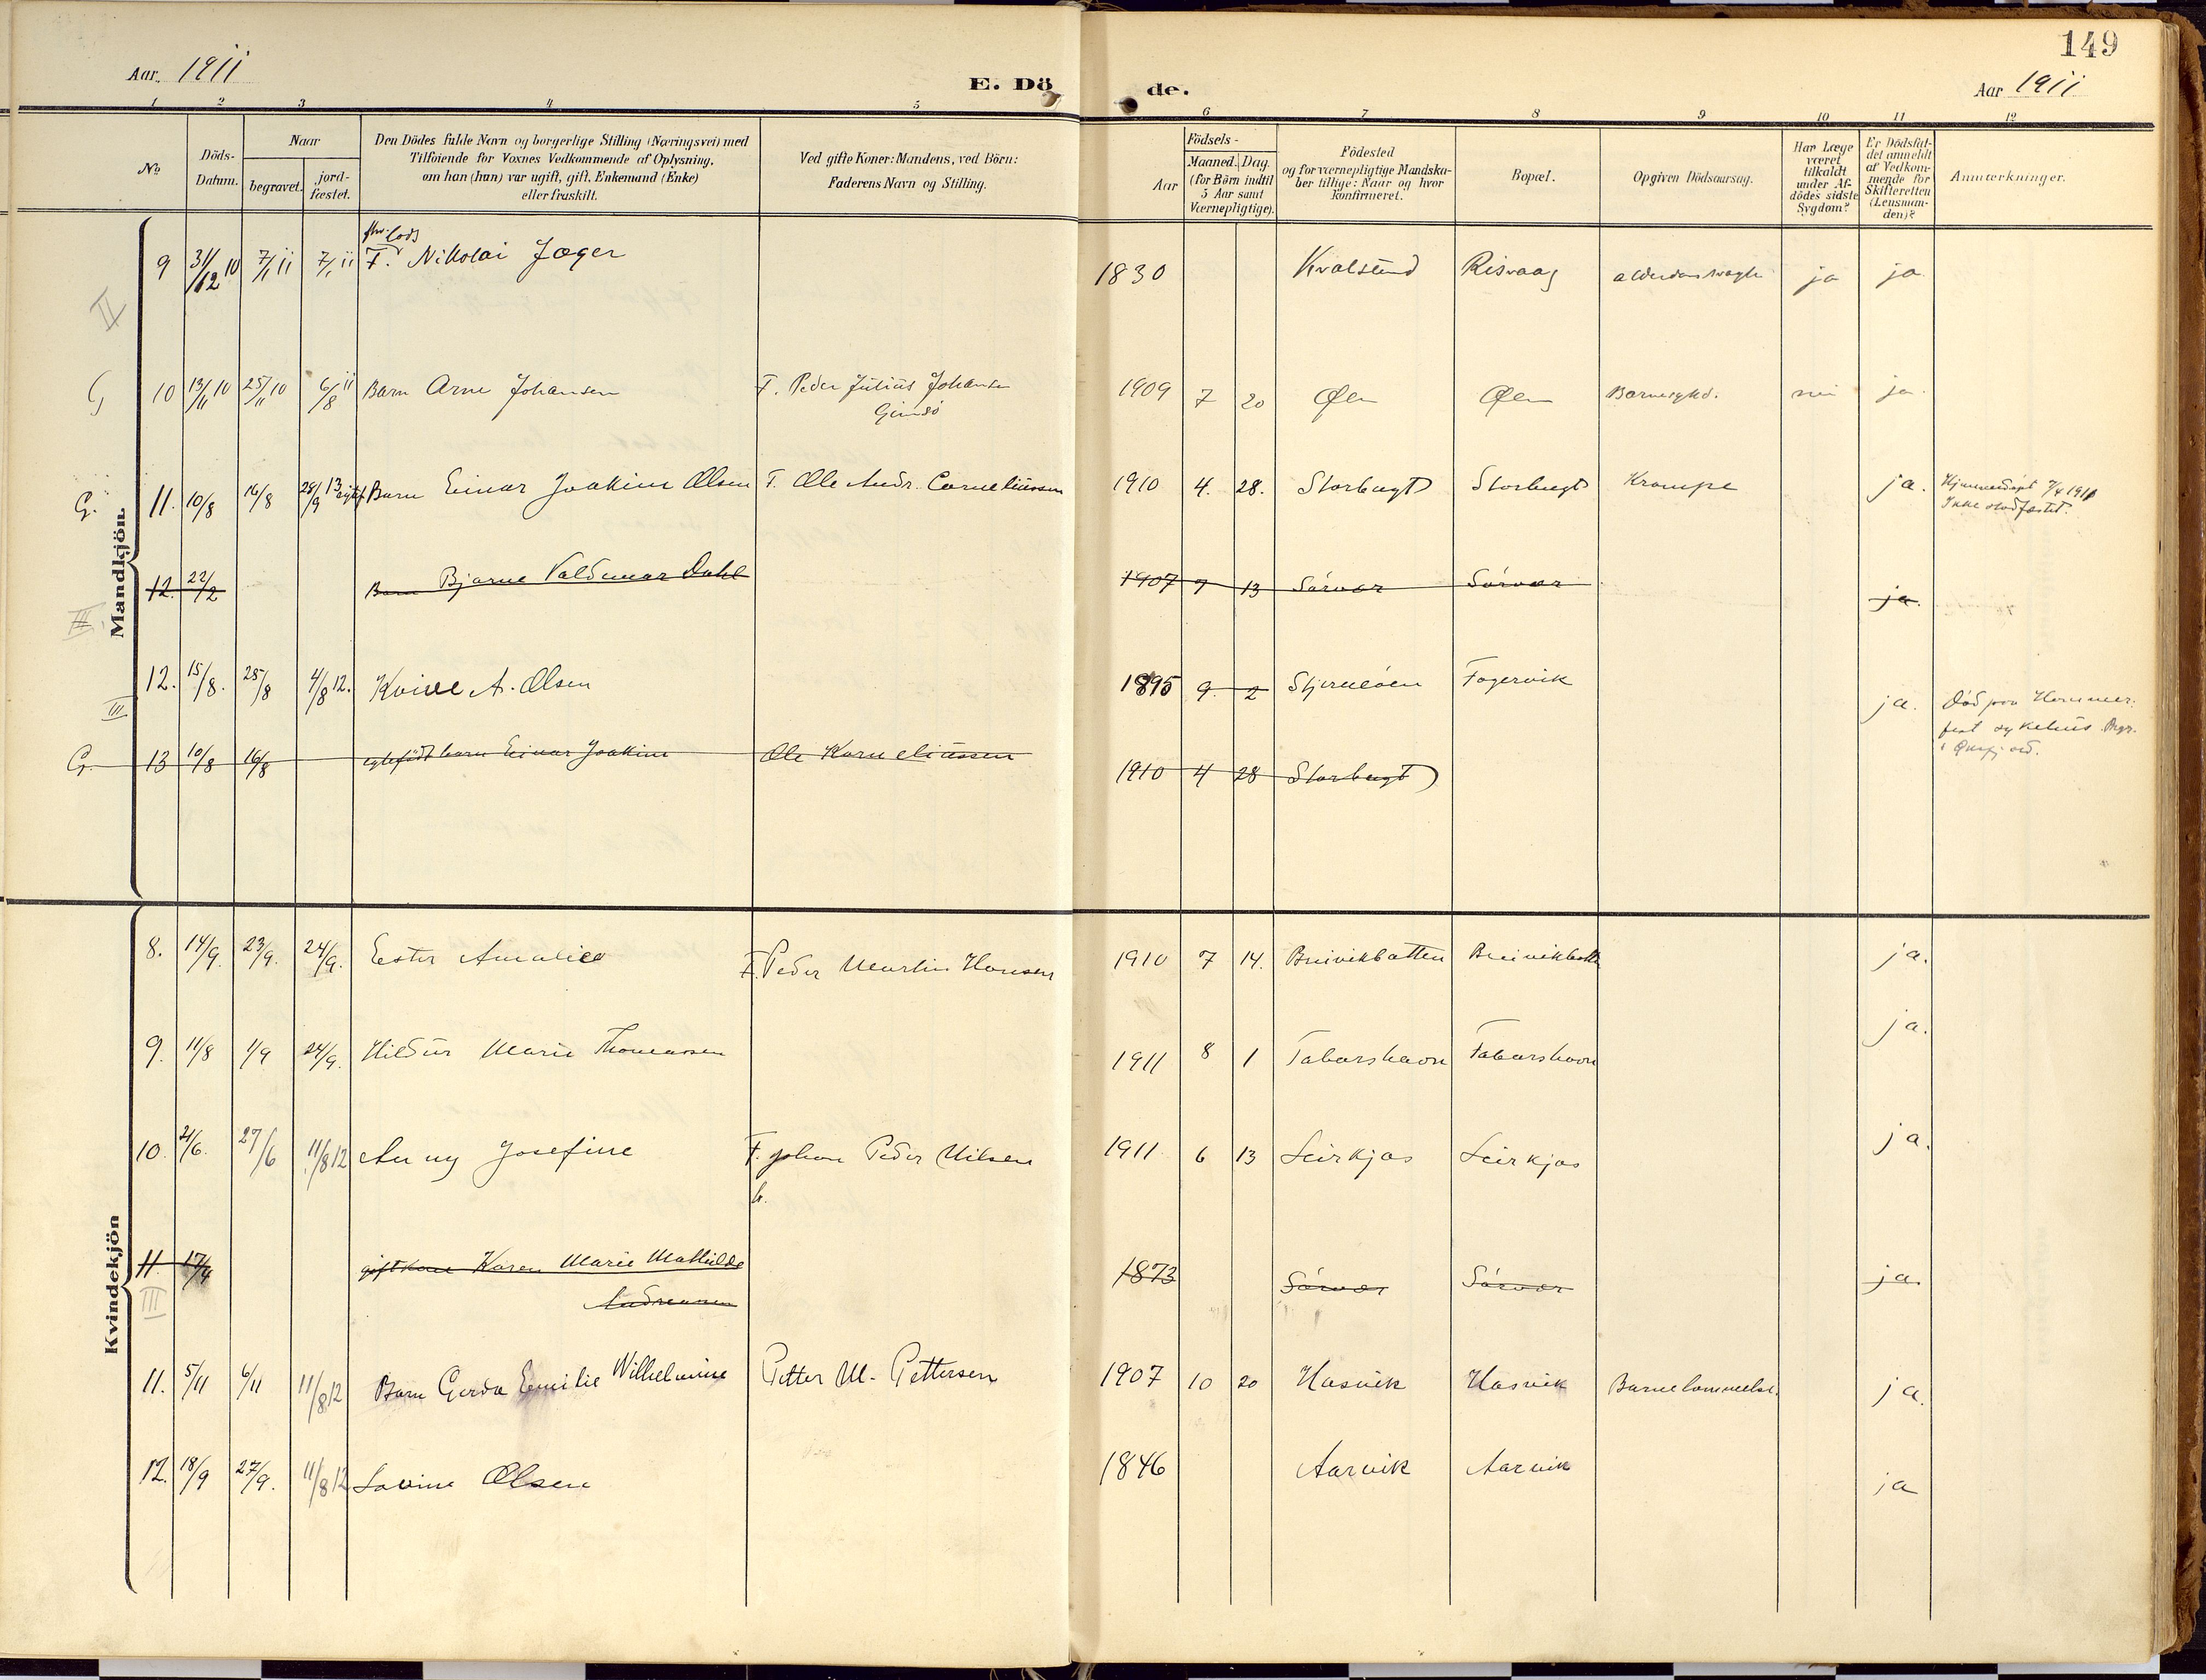 149
Aar. 1911 E. Dö de. Aar 1911
1 2 3 4 5 6 7 8 9 10 11 12
No
Döds-
Datum.
Naar
begravet.
jord-
fæstet.
Den Dödes fulde Navn og borgerlige Stilling (Næringsvei) med
Tilföiende for Voxnes Vedkommende af Oplysning,
om han (hun) var ugift, gift, Enkemand (Enke)
eller fraskilt.
Ved gifte Koner: Mandens, ved Börn:
Faderens Navn og Stilling.
Födsels-
Aar
Maaned. Dag.
(for Börn indtil
5 Aar samt
Værnepligtige).
Födested
og for værnepligtige Mandska-
ber tillige: Naar og hvor
konfirmeret.
Bopæl.
Opgiven Dödsaarsag.
Har Læge
været
tilkaldt
under Af-
dödes sidste
Sygdom?
Er Dödsfal-
det anmeldt
af Vedkom-
mende for
Skifteretten
(Lensman-
den)?
Anmærkninger.
Mandkjön.
II
9 31/12 10 7/1 11 7/1 11 F. Nikolai Jæger 1830 Kvalsund Risvaag ja ja
G 10 13/11 10 25/11 10 6/8 11 Barn Arne Johansen F. Peder Julius Johansen 1909 7 20 Øen Øen Barnesygd. nei ja.
G. 11. 10/8 16/8 28/9 13 Barn Einar Joakim Olsen F. Ole Andr. Corneliussen 1910 4. 28. Storbugt Storbugt Krampe ja. Hjemmedøpt 7/4 1911
Ikke stadfæstet.
12. 22/2 Barn Bjarne Valdemar Dahl 1907 7 13 Sörvær Sörvær ja.
III
12. 15/8. 25/8 4/8 12. Kvive A. Olsen 1895 9. 2 Stjerneöen Fagervik ja. Död paa Hammer-
fest sykehus. Begr.
III
G. 13 10/8 16/8 egtefödt barn Einar Joakim Ole Korneliussen 1910 4 28 Storbugt
Kvindekjön
8. 14/9. 23/9. 24/9. Ester Amalie F. Peder Martin Hansen 1910 7 14. Breivikbotten Breivikbotten ja.
9. 11/8 1/9 24/9. Hildur Marie Thomassen 1911 8 1 Tabarshavn Tabarshavn ja.
10. 21/6. 27/6 11/8 12 Anny Josefine F. Johan Peder Nilsen 1911 6 13 Seirkjos Seirkjos ja.
11 17/4 gift kone Karen Marie Mathilde
Andreassen 1873 Sörvær Sörvær ja.
III
11. 5/11 6/11 11/8 12 Barn Gerda Emilie Wilhelmine Petter M. Pettersen 1907 10 20 Hasvik Hasvik ja.
12. 18/9 27/9. 11/8 12 Lovine Olsen 1846 Aarvik Aarvik ja